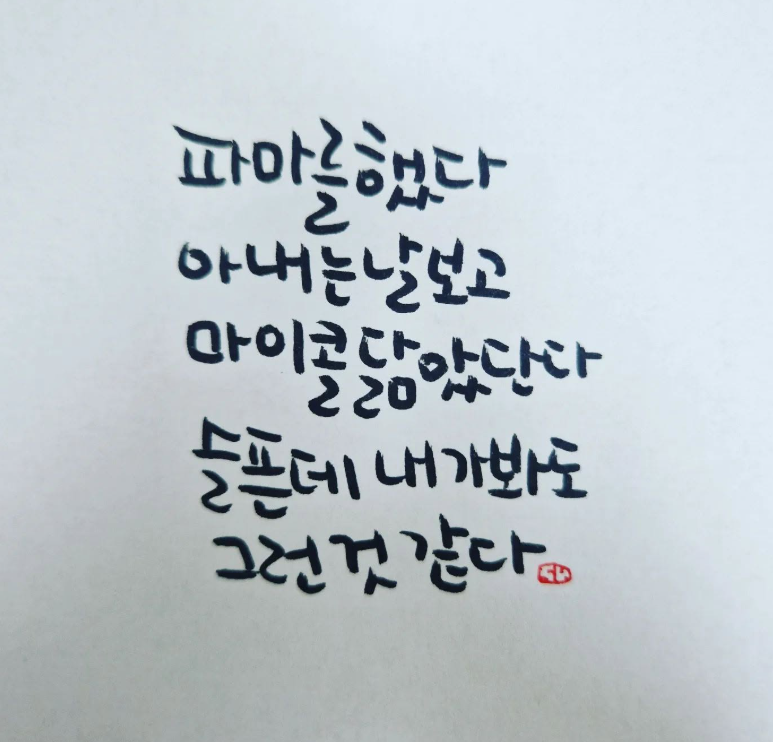 파마를했다
아내는날보고
마이콜닮았단다
슬픈데 내가봐도
그런것 같다